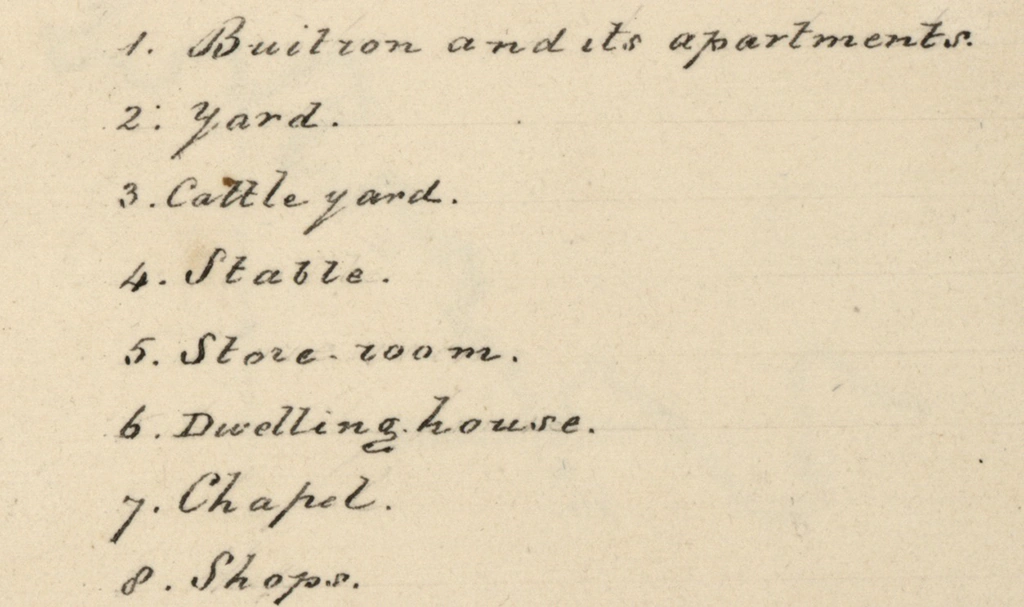 1. Buitron and its apartments.
2. Yard.
3. Cattle yard.
4. Stable.
5. Store-room.
6. Dwelling house.
7. Chapel.
8. Shops.